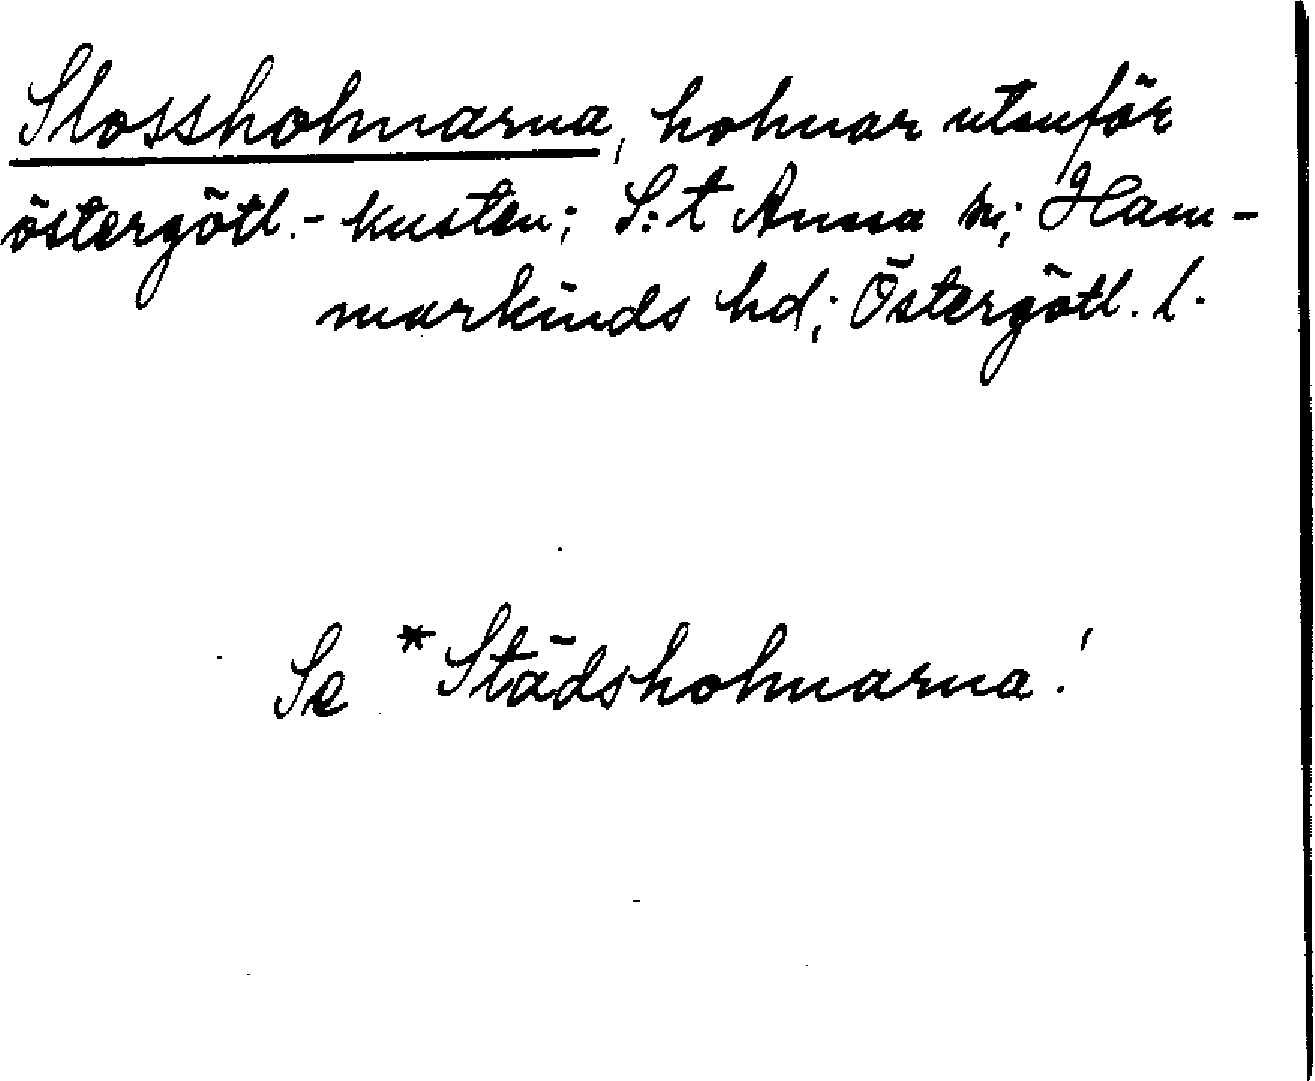 Slossholmarna, holmar utanför
östergötl.-kusten; S:t Anna sn; Ham-
markinds hd; Östergötl. l.
Se *Städsholmarna!